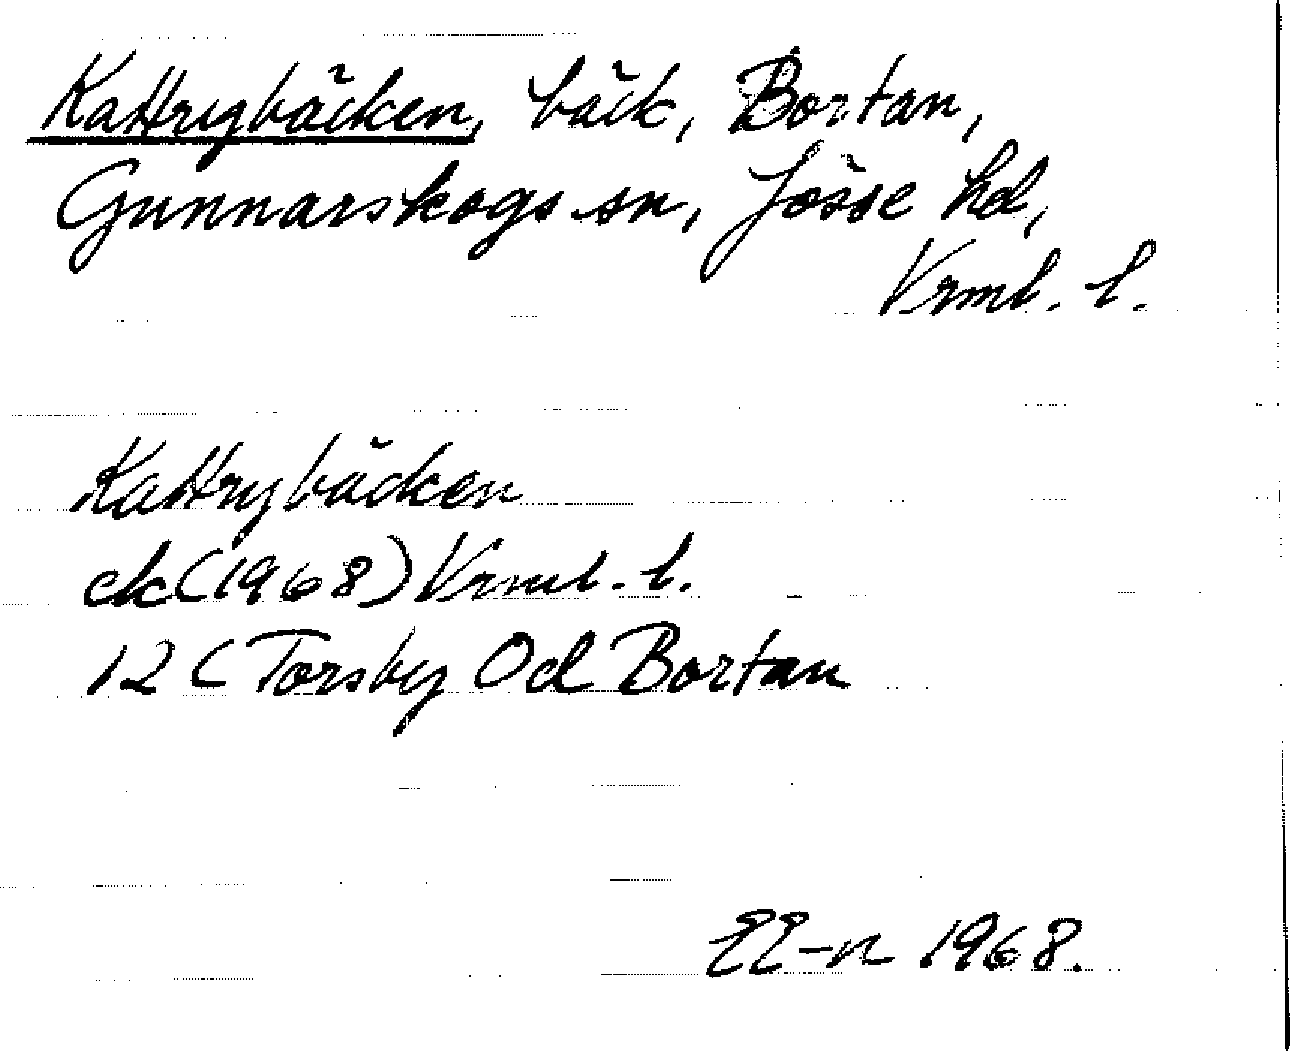 Kattrygbäcken, bäck, Bortan,
Gunnarskogs sn, Jösse hd,
Vrml. l.
Kattrygbäcken
ek (1968) Vrml. l.
12 C Torsby 0d Bortan
EE-n 1968.